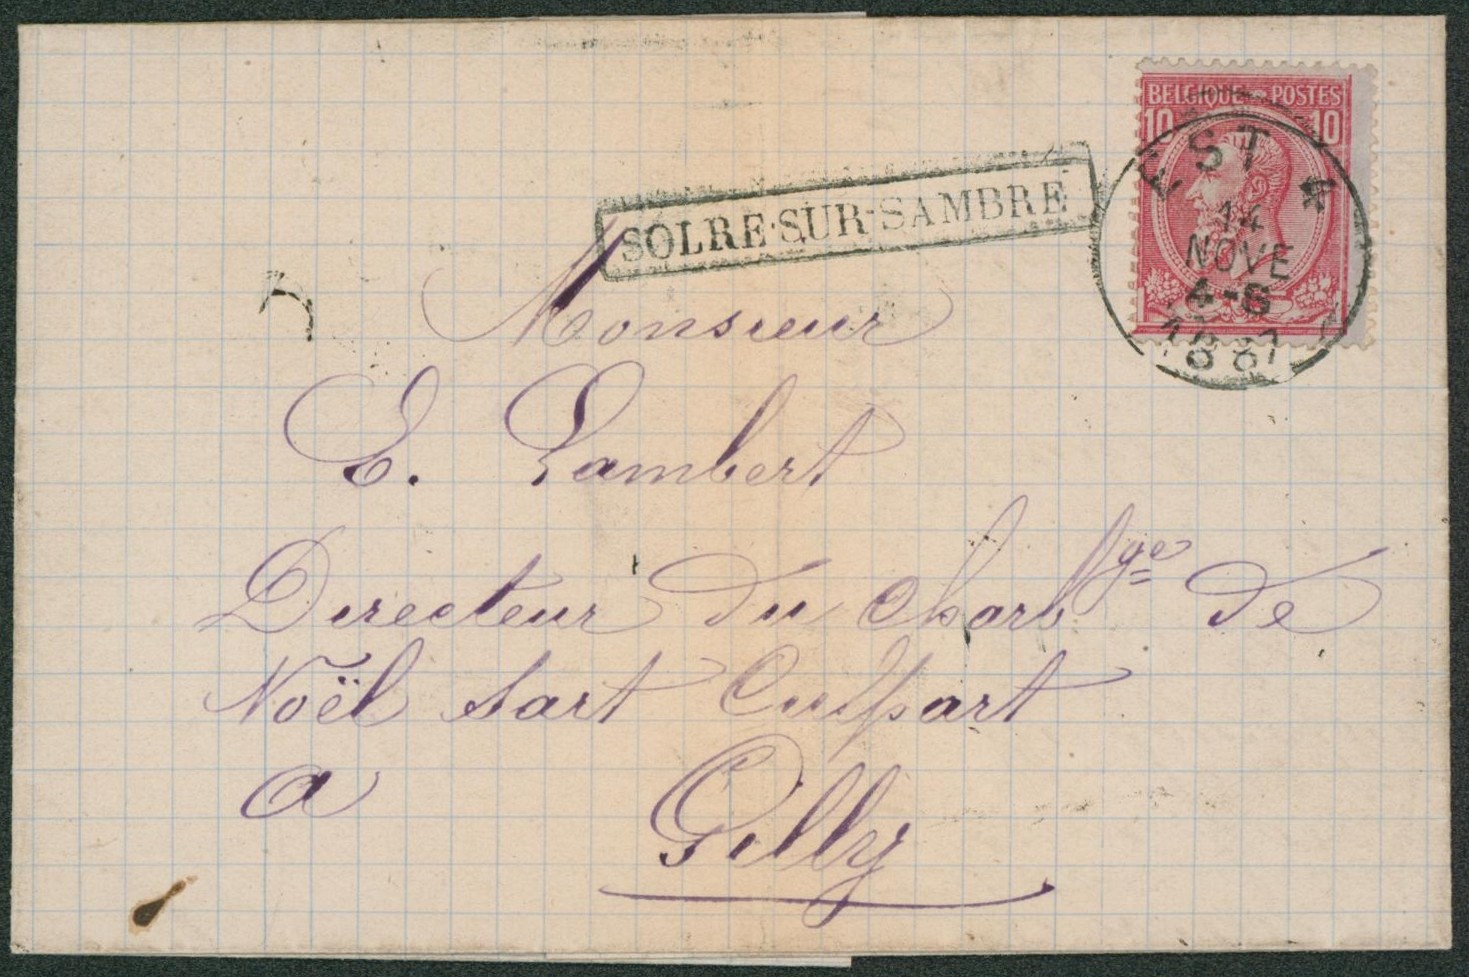 BELGIQUE POSTES
10 10
EST 4
14
NOVE
4-6
1887
SOLRE-SUR-SAMBRE
Monsieur
E. Lambert
Directeur du Charbge de
Noël Sart Culpart
a
Gilly